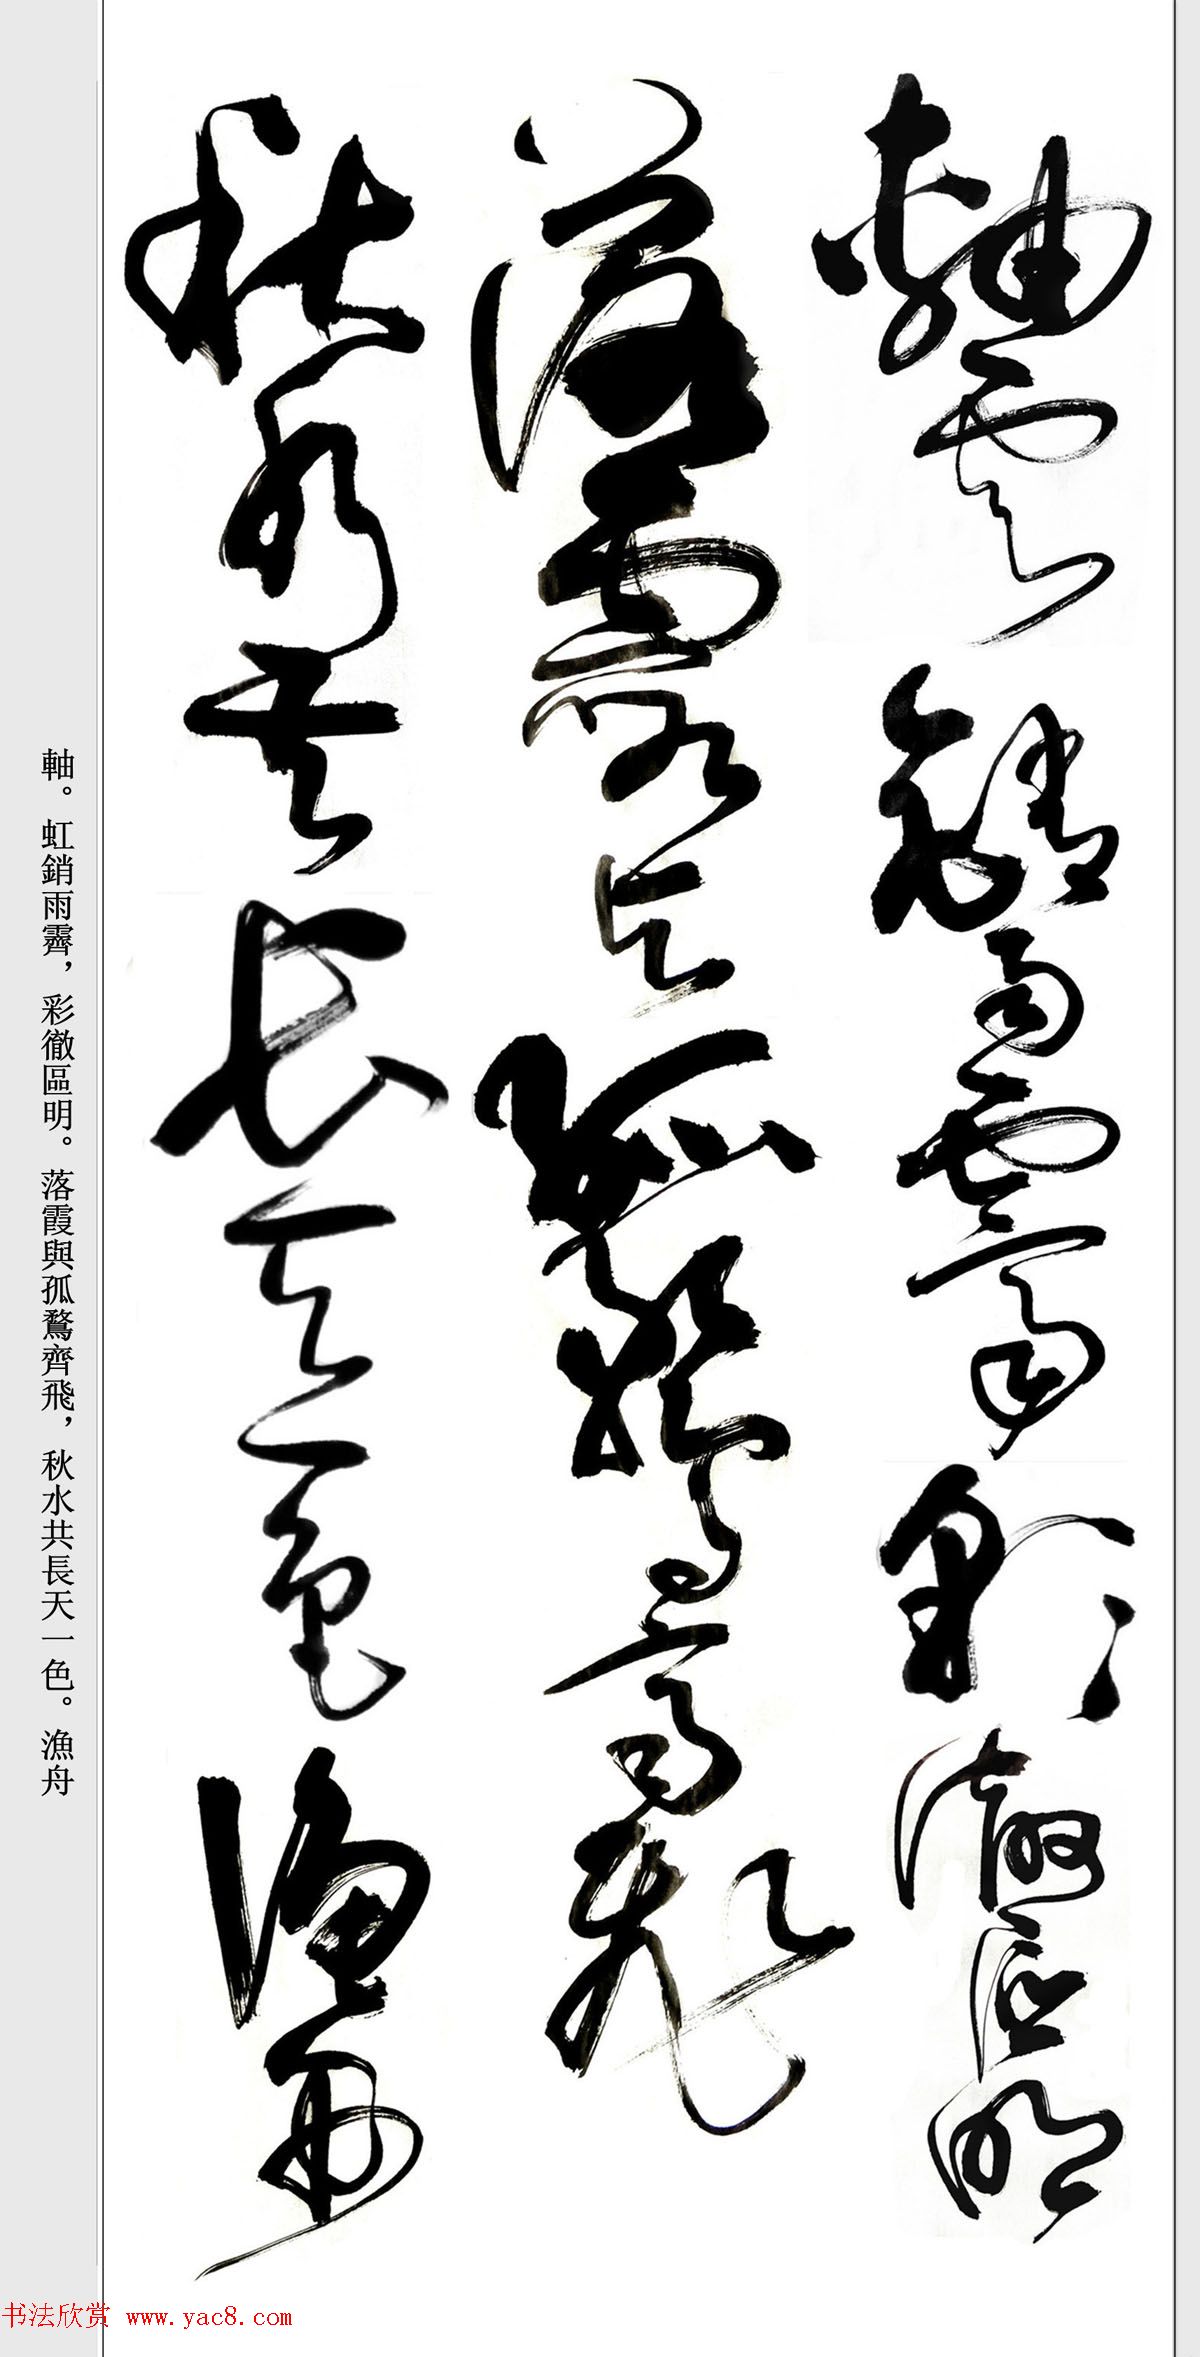 軸雲銷雨霽彩徹區明
落霞與孤鶩齊飛
秋水共長天一色漁舟
軸。虹銷雨霽，彩徹區明。落霞與孤鶩齊飛，秋水共長天一色。漁舟
书法欣赏 www.yac8.com